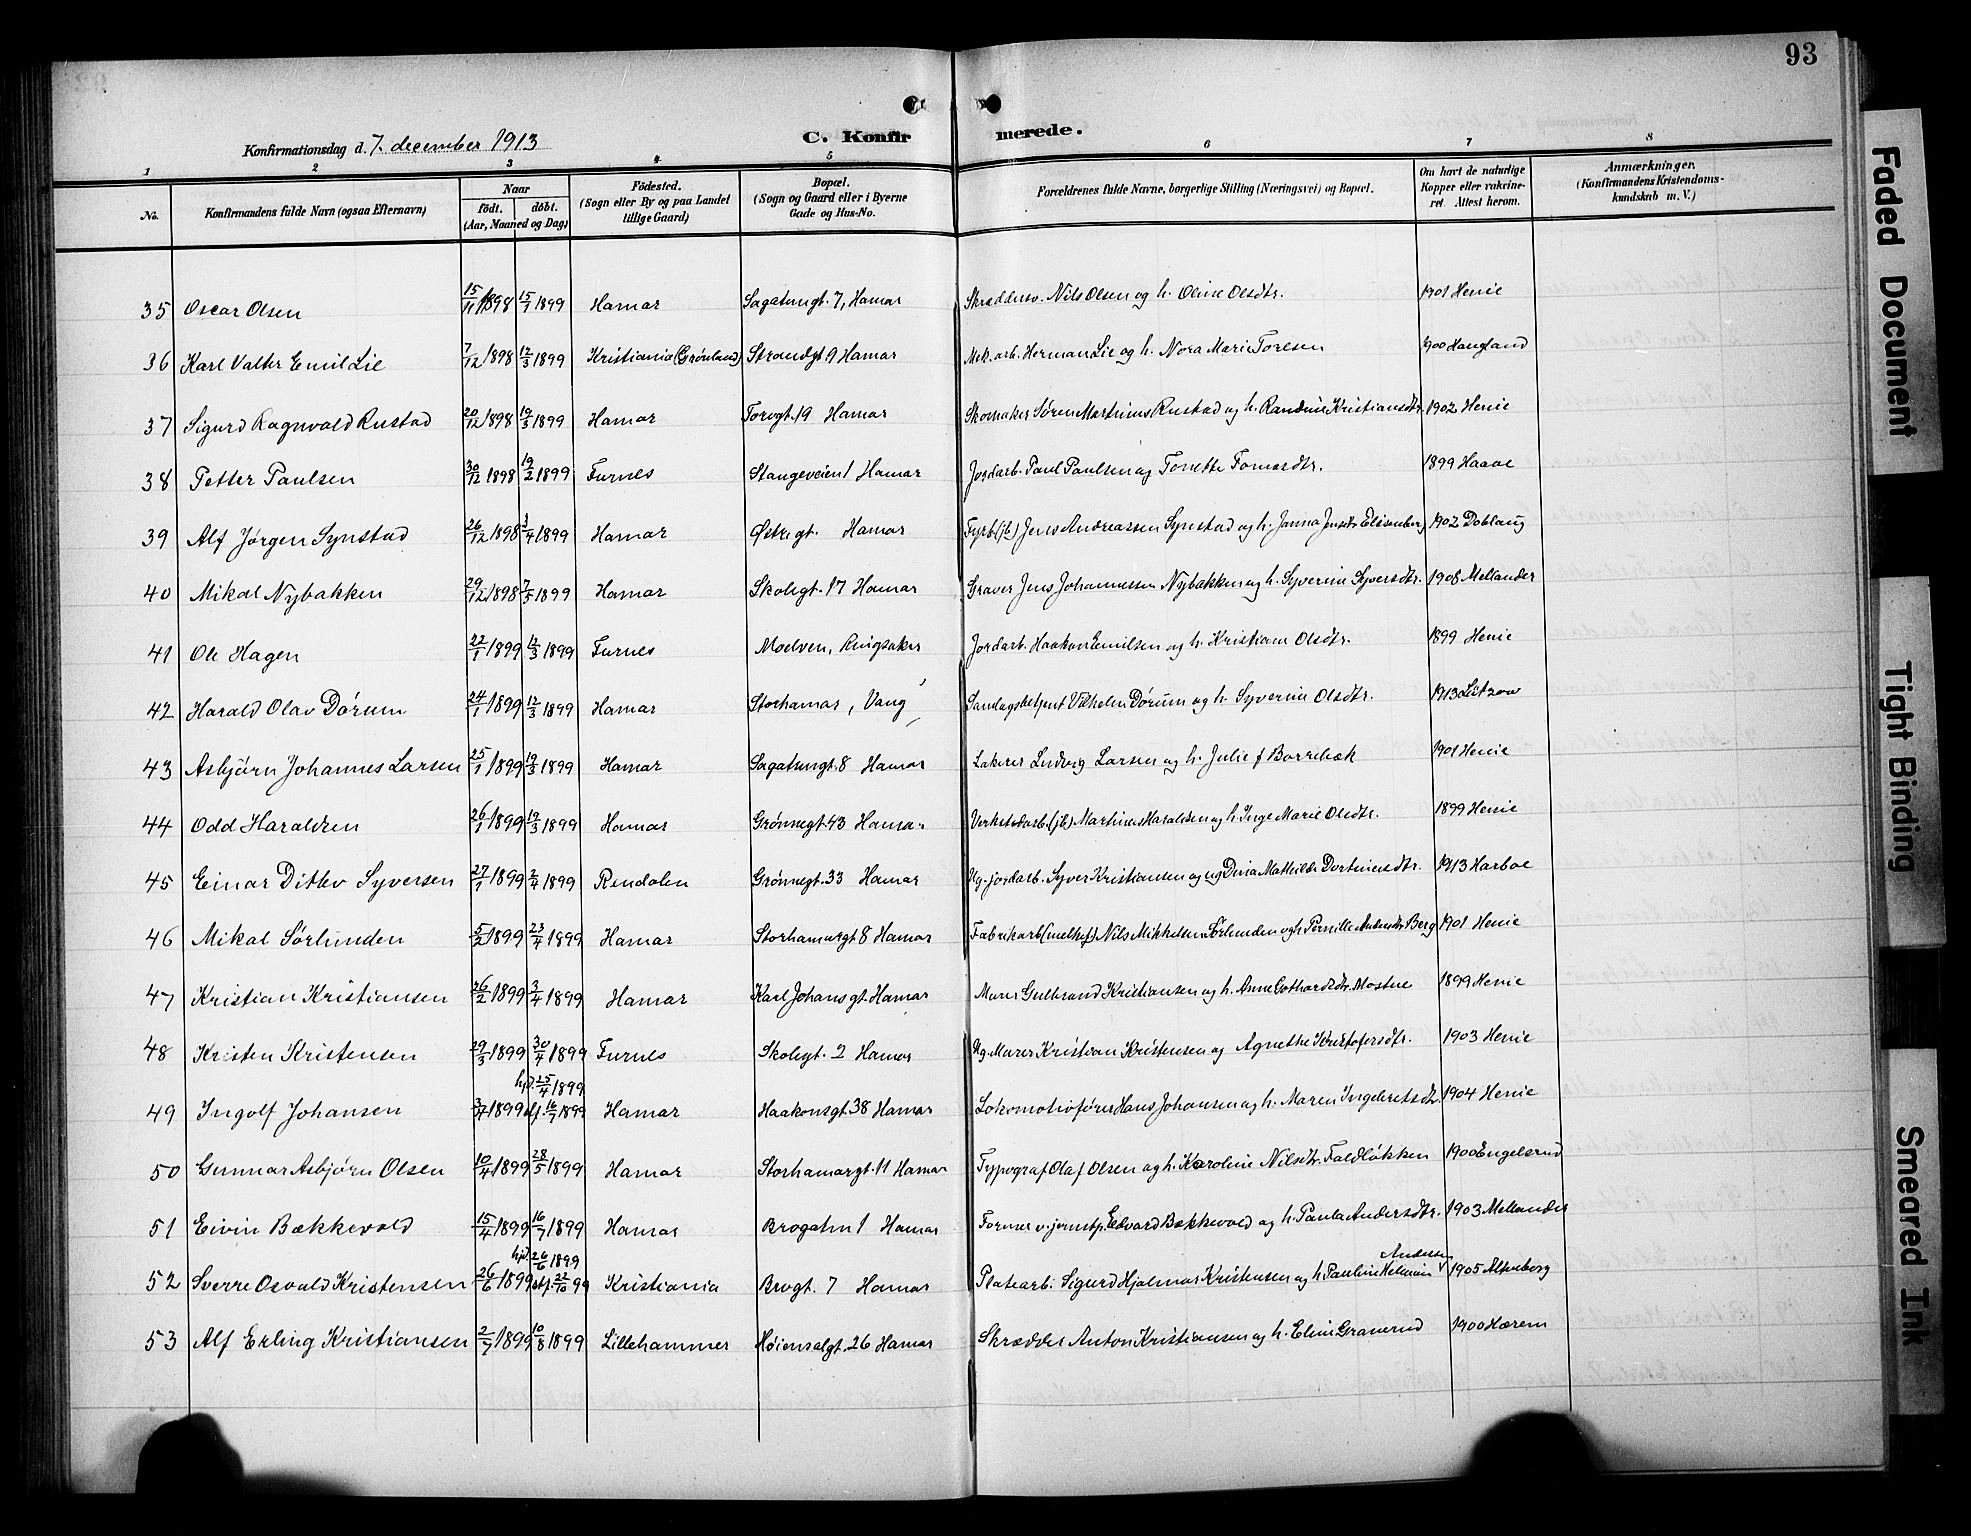 93
Konfirmationsdag d. 7. december 1913
C. Konfirmerede.
1 2 3 4 5 6 7 8
No.
Konfirmandens fulde Navn (ogsaa Efternavn)
Naar
født. døbt.
(Aar, Maaned og Dag)
Fødested.
(Sogn eller By og paa Landet
tillige Gaard)
Bopæl.
(Sogn og Gaard eller i Byerne
Gade og Hus-No.
Forældrenes fulde Navne, borgerlige Stilling (Næringsvei) og Bopæl.
Om havt de naturlige
Kopper eller vakcine-
ret. Attest herom.
Anmærkninger.
(Konfirmandens Kristendoms-
kundskab m. V.)
35 Oscar Olsen 15/11 1898 15/1 1899 Hamar Sagatungt. 7, Hamar Skræddersv. Nils Olsen og h. Oline Olsdtr. 1901 Henie
36 Karl Valter Emil Lie 7/12 1898 12/3 1899 Kristiania (Grønland) Strandgt 9 Hamar Mek. arb. Herman Lie og h. Nora Marie Toresen 1900 Haugland
37 Sigurd Ragnvald Rustad 20/12 1898 19/3 1899 Hamar Torvgt. 19 Hamar Skomaker Søren Martinius Rustad og h. Randine Kristiansdtr. 1902 Henie
38 Petter Paulsen 30/12 1898 19/2 1899 Furnes Stangeveien 1 Hamar Jordarb. Paul Paulsen og Tonette 1899
39 Alf Jørgen Synstad 26/12 1898 3/4 1899 Hamar Østregt. Hamar Fyrb. (jb) Jens Andreassen Synstad og h. Janna Jensdtr. 1902 Doblaug
40 Mikal Nybakken 29/12 1898 7/5 1899 Hamar Skolegt. 17 Hamar Graver Jens Johannessen Nybakken og h. Syverine Syversdtr. 1908 Mellander
41 Ole Hagen 22/1 1899 12/3 1899 Furnes Moelven, Ringsaker Jordarb. Haakon Emilsen og h. Kristiane Olsdtr. 1899 Henie
42 Harald Olav Dørum 24/1 1899 12/3 1899 Hamar Storhamar, Vang Vilhelm Dørum og h. Syverine Olsdtr. 1913 Lützow
43 Asbjørn Johannes Larsen 25/1 1899 19/3 1899 Hamar Sagatungt. 8 Hamar Lakerer Ludvig Larsen og h. Julie f Borrebæk 1901 Henie
44 Odd Haraldsen 26/1 1899 19/3 1899 Hamar Grønnegt. 43 Hamar Verkstedarb. (jb). Martinus Haraldsen og h Inge Marie Olsdtr. 1899 Henie
45 Einar Ditlev Syversen 27/1 1899 2/4 1899 Rendalen Grønnegt. 33 Hamar Ug. jordarb. Syver Kristiansen og ug Dina Mathilde 1913 Harboe
46 Mikal Sørlunden 5/2 1899 23/4 1899 Hamar Storhamargt 8 Hamar Fabrikarb (melkef) Nils Mikkelsen Sørlunden og h Pernille Andersdtr Berg 1901 Henie
47 Kristian Kristiansen 26/2 1899 3/4 1899 Hamar Karl Johans gt. Hamar Murer Gulbrand Kristiansen og h. Anne Gothardsdtr. Mostue 1899 Henie
48 Kristen Kristensen 29/3 1899 30/4 1899 Furnes Skolegt. 2 Hamar Ug. Murer Kristian Kristensen og Agnethe Kristofersdtr. 1903 Henie
hjd. 25/4 1899
49 Ingolf Johansen 3/4 1899 stf. 16/7 1899 Hamar Haakonsgt. 38 Hamar Lokomotivfører Hans Johansen og h. Maren Ingebretsdtr. 1904 Henie
50 Gunnar Asbjørn Olsen 10/4 1899 28/5 1899 Hamar Storhamargt. 11 Hamar Typograf Olaf Olsen og h. Karoline Nilsdtr. Faldløkken 1900 Engelsrud
51 Eivin Bækkevold 15/4 1899 16/7 1899 Hamar Brogatn 1 Hamar Former v. jernstp. Edvard Bækkevold og h. Paula Andersdtr. 1903 Mellander
hjd. 26/6 1899 Andersen
52 Sverre Osvald Kristensen 26/6 1899 stf. 22/10 99 Kristiania Brogt. 7 Hamar Platearb. Sigurd Hjalmar Kristensen og h Pauline 1905 Altenborg
53 Alf Erling Kristiansen 2/7 1899 10/8 1899 Lillehammer Høiensalgt. 26 Hamar Skrædder Anton Kristiansen og h. Eline Granerud 1900 Hærem
Faded Document
Tight Binding
Smeared Ink